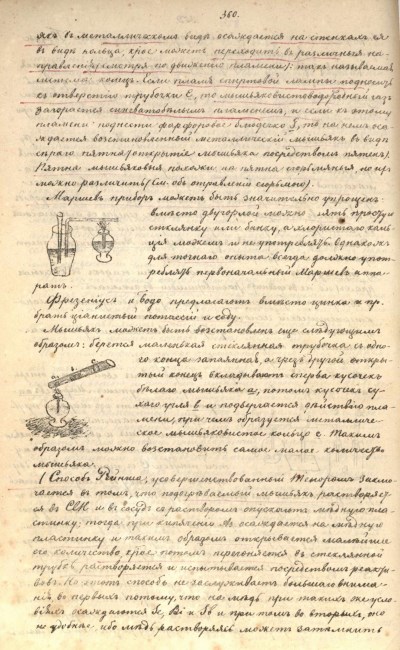 360.
якъ въ металлическомъ видѣ осаждается на стѣнкахъ ея
въ видѣ кольца, кое можетъ переходить въ различныя на-
правленія (смотря по движенію пламени): такъ называемая
метода: конецъ. Если пламя спиртовой лампы поднесть
къ отверстію трубочки С, то мышьяковистоводородный газъ
загорается синеватобѣлымъ пламенемъ, и если къ этому
пламени поднести фарфоровое блюдечко, то на немъ оса-
ждается возстановленный металлическій мышьякъ въ видѣ
сѣраго пятна (открытіе мышьяка посредствомъ пятенъ).
Пятна мышьяковыя похожи на пятна сюрьмяныя, но ихъ
можно различить (см. объ отравленіи сюрьмою).
Маршевъ приборъ можетъ быть значительно упрощенъ
вмѣсто двугорлой можно взять простую
стклянку или банку, а хлористаго каль-
ція можемъ и не употреблять. Однакожъ
для точнаго опыта всегда должно упот-
реблять первоначальный Маршевъ аппа-
ратъ.
Фрезеніусъ и Бобо предлагаютъ вмѣсто цинка и пр.
брать ціанистый потассій и соду.
Мышьякъ можетъ быть возстановленъ еще слѣдующимъ
образомъ: берется маленькая стеклянная трубочка съ одно-
го конца запаянная, а чрезъ другой откры-
тый конецъ вкладываютъ сперва кусочекъ
бѣлаго мышьяка а, потомъ кусочекъ су-
хаго угля b и подвергается дѣйствію пла-
мени, при чемъ образуется металличе-
ское мышьяковистое кольцо с. Такимъ
образомъ можно возстановить самое малое количество
мышьяка.
(Способъ Рейнша, усовершенствованный заклю-
чается въ томъ, что подозрѣваемый мышьякъ растворяет-
ся въ и въ сосудъ съ растворомъ опускаютъ мѣдную пла-
стинку; тогда при кипяченіи As осаждается на мѣдную
пластинку и такимъ образомъ открывается малѣйшее
его количество, кое потомъ перегоняется въ стеклянной
трубкѣ, растворяется и испытывается посредствомъ реакти-
вовъ. Но этотъ способъ не заслуживаетъ большаго внима-
нія, во первыхъ потому, что на мѣдь при такихъ же усло-
віяхъ осаждаются Bi и Sb и при томъ во вторыхъ, оно
не удобнѣе ибо мѣдь растворяясь можетъ затемнить